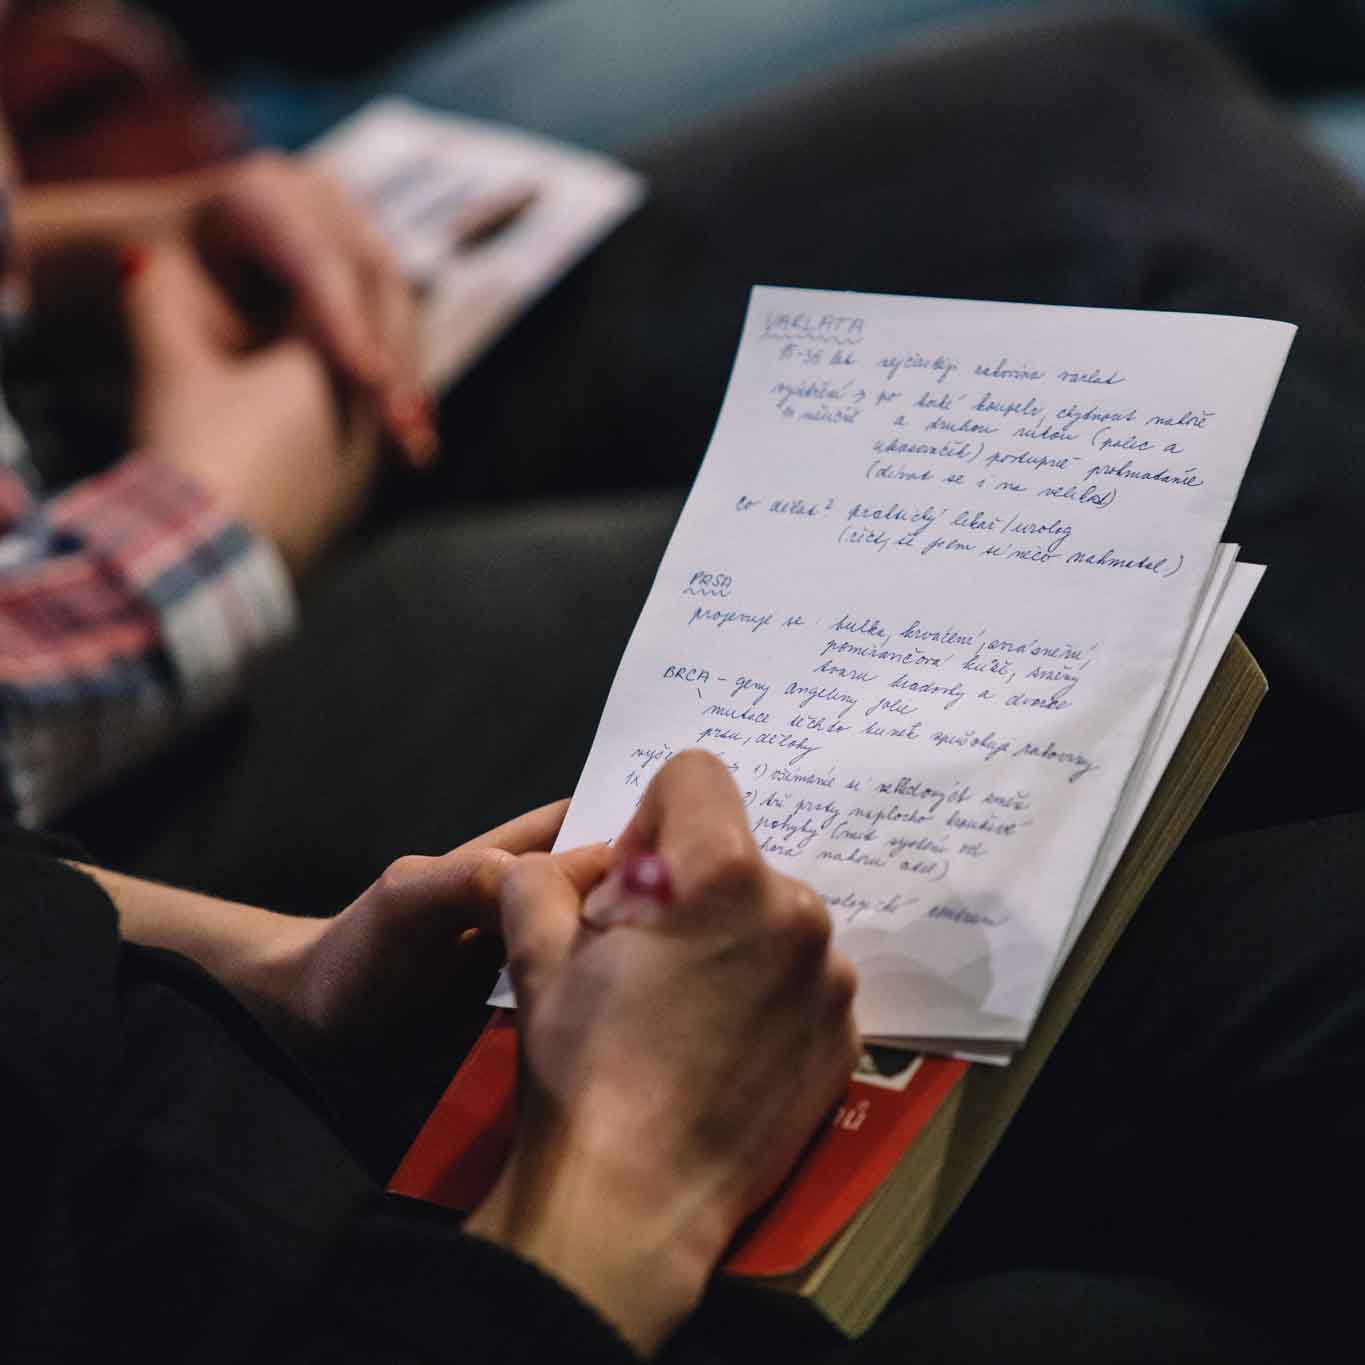 VARLATA
15-35 let nejčastěji rakovina varlat
vyšetření → po horké koupeli, chytnout nahoře
a druhou rukou (palec a
ukazováček) postupné prohmatání
(dívat se i na velikost)
co dělat? praktický lékař/urolog
(říct, že jsem si něco nahmatal)
PRSA
projevuje se: bulka, krvácení, svrasknění,
pomerančová kůže, změny
tvaru bradavky a dvorce
BRCA - geny Angeliny Jolie
mutace těchto buněk způsobuje rakoviny
prsu, dělohy
1x → 1) všímání si vzhledových změn
2) tři prsty naplocho krouživé
pohyby
nahoru
centrum
ů